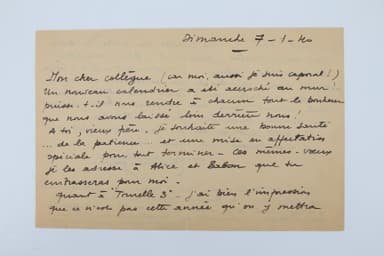 Dimanche 7-1-40
Mon cher collègue (car moi, aussi je suis caporal!)
Un nouveau calendrier a été accroché au mur:
puisse-t-il nous rendre à chacun tout le bonheur
que nous avons laissé loin derrière nous!
A toi, vieux frère, je souhaite une bonne santé
... de la patience... et une mise en affectation
spéciale pour tout terminer - Ces mêmes vœux
je les adresse à Alice et que tu
embrasseras pour moi.
Quant à "Tourelle 3" - j'ai bien l'impression
que ce n'est pas cette année qu'on y mettra